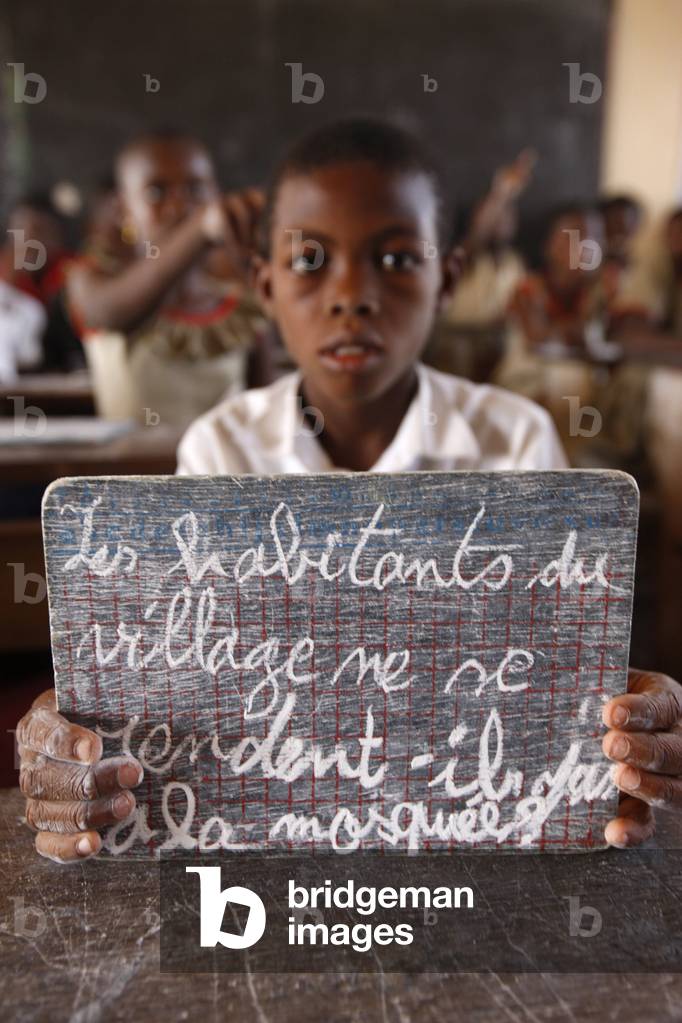 Les habitants du
village ne se
rendent-ils pas
a la mosquée?
bridgeman
images